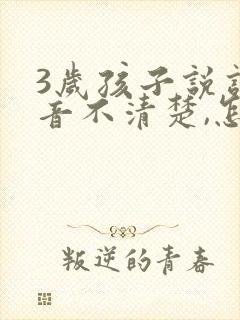 3歲孩子說
音不清楚,怎
叛逆的青春